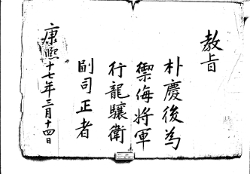 教旨
朴慶後為
禦侮將軍
行龍驤衛
副司正者
康熙十七年三月十四日